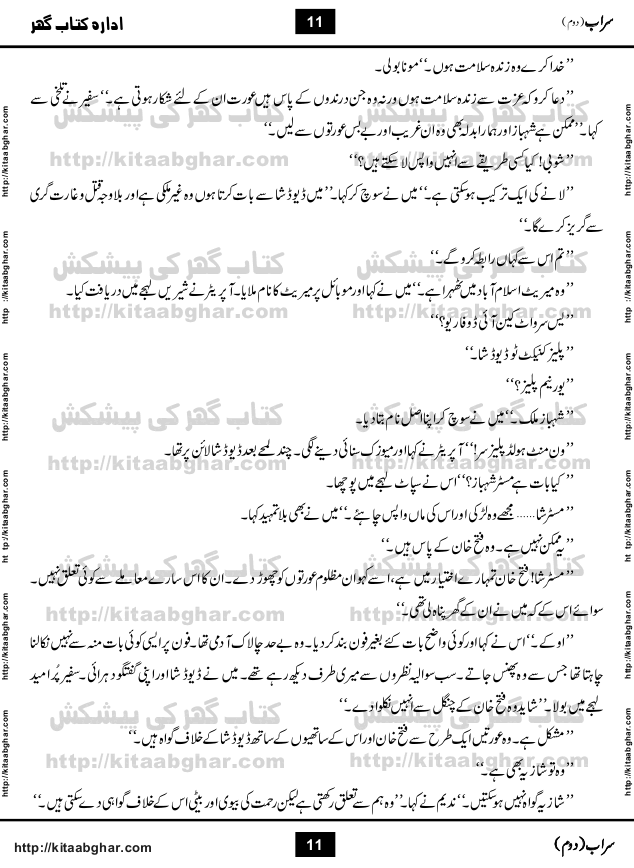 سراب (دوم)
11
ادارہ کتاب گھر
’’خدا کرے وہ زندہ سلامت ہوں۔‘‘ مونا بولی۔
’’دعا کرو کہ عزت سے زندہ سلامت ہوں ورنہ وہ جن درندوں کے پاس ہیں عورت ان کے لئے شکار ہوتی ہے۔‘‘ سفیر نے تلخی سے
کہا۔ ’’ممکن ہے شہباز اور ہمارا بدلہ بھی وہ ان غریب اور بے بس عورتوں سے لیں۔‘‘
’’شوبی! کیا کسی طریقے سے انہیں واپس لا سکتے ہیں؟‘‘
’’لانے کی ایک ترکیب ہو سکتی ہے۔‘‘ میں نے سوچ کر کہا۔ ’’میں ڈیوڈ شا سے بات کرتا ہوں وہ غیر ملکی ہے اور بلاوجہ قتل و غارت گری
سے گریز کرے گا۔‘‘
’’تم اس سے کہاں رابطہ کرو گے۔‘‘
’’وہ میریٹ اسلام آباد میں ٹھہرا ہے۔‘‘ میں نے کہا اور موبائل پر میریٹ کا نام ملایا۔ آپریٹر نے شیریں لہجے میں دریافت کیا۔
’’یس سر واٹ کین آئی ڈو فار یو؟‘‘
’’پلیز کنیکٹ ٹو ڈیوڈ شا۔‘‘
’’یور نیم پلیز؟‘‘
’’شہباز ملک۔‘‘ میں نے سوچ کر اپنا اصل نام بتا دیا۔
’’ون منٹ ہولڈ پلیز سر!‘‘ آپریٹر نے کہا اور میوزک سنائی دینے لگی۔ چند لمحے بعد ڈیوڈ شا لائن پر تھا۔
’’کیا بات ہے مسٹر شہباز؟‘‘ اس نے سپاٹ لہجے میں پوچھا۔
’’مسٹر شا...... مجھے وہ لڑکی اور اس کی ماں واپس چاہئے۔‘‘ میں نے بھی بلا تمہید کہا۔
’’یہ ممکن نہیں ہے۔ وہ فتح خان کے پاس ہیں۔‘‘
’’مسٹر شا! فتح خان تمہارے اختیار میں ہے، اسے کہو ان مظلوم عورتوں کو چھوڑ دے۔ ان کا اس سارے معاملے سے کوئی تعلق نہیں۔
سوائے اس کے کہ میں نے ان کے گھر پناہ لی تھی۔‘‘
’’اوکے۔‘‘ اس نے کہا اور کوئی واضح بات کئے بغیر فون بند کر دیا۔ وہ بے حد چالاک آدمی تھا۔ فون پر ایسی کوئی بات منہ سے نہیں نکالنا
چاہتا تھا جس سے وہ پھنس جاتے۔ سب سوالیہ نظروں سے میری طرف دیکھ رہے تھے۔ میں نے ڈیوڈ شا اور اپنی گفتگو دہرائی۔ سفیر پُر امید
لہجے میں بولا۔ ’’شاید وہ فتح خان کے چنگل سے انہیں نکلوا دے۔‘‘
’’مشکل ہے۔ وہ عورتیں ایک طرح سے فتح خان اور اس کے ساتھیوں کے ساتھ ڈیوڈ شا کے خلاف گواہ ہیں۔‘‘
’’وہ تو شازیہ بھی ہے۔‘‘
’’شازیہ گواہ نہیں ہو سکتیں۔‘‘ ندیم نے کہا۔ ’’وہ ہم سے تعلق رکھتی ہے لیکن رحمت کی بیوی اور بیٹی اس کے خلاف گواہی دے سکتی ہیں۔‘‘
کتاب گھر کی پیشکش
کتاب گھر کی پیشکش
http://kitaabghar.com
http://kitaabghar.com
کتاب گھر کی پیشکش
کتاب گھر کی پیشکش
http://kitaabghar.com
http://kitaabghar.com
کتاب گھر کی پیشکش
کتاب گھر کی پیشکش
http://kitaabghar.com
http://kitaabghar.com
کتاب گھر کی پیشکش
کتاب گھر کی پیشکش
http://kitaabghar.com
http://kitaabghar.com
کتاب گھر کی پیشکش
کتاب گھر کی پیشکش
http://kitaabghar.com
http://kitaabghar.com
سراب (دوم)
11
http://kitaabghar.com